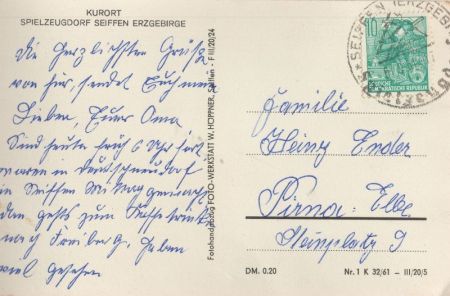 KURORT
SPIELZEUGDORF SEIFFEN ERZGEBIRGE
Die herzlichsten Grüße
von hier, sendet Euch meine
Lieben, Eure Oma
Sind heute früh 6 Uhr fort
waren in Deutschneudorf
in Seiffen Mittag gemacht
dann gehts zum
nach Freiberg, haben
viel gesehen
Fotohandabzug FOTO-WERKSTATT W. HOPPNER, Seiffen - F III/20/24
SEIFFEN (ERZGEB)
10
DEUTSCHE
DEMOKRATISCHE REPUBLIK
Familie
Heinz Ender
Pirna: Elbe
Steinplatz 9
DM. 0.20
Nr. 1 K 32/61 — III/20/5